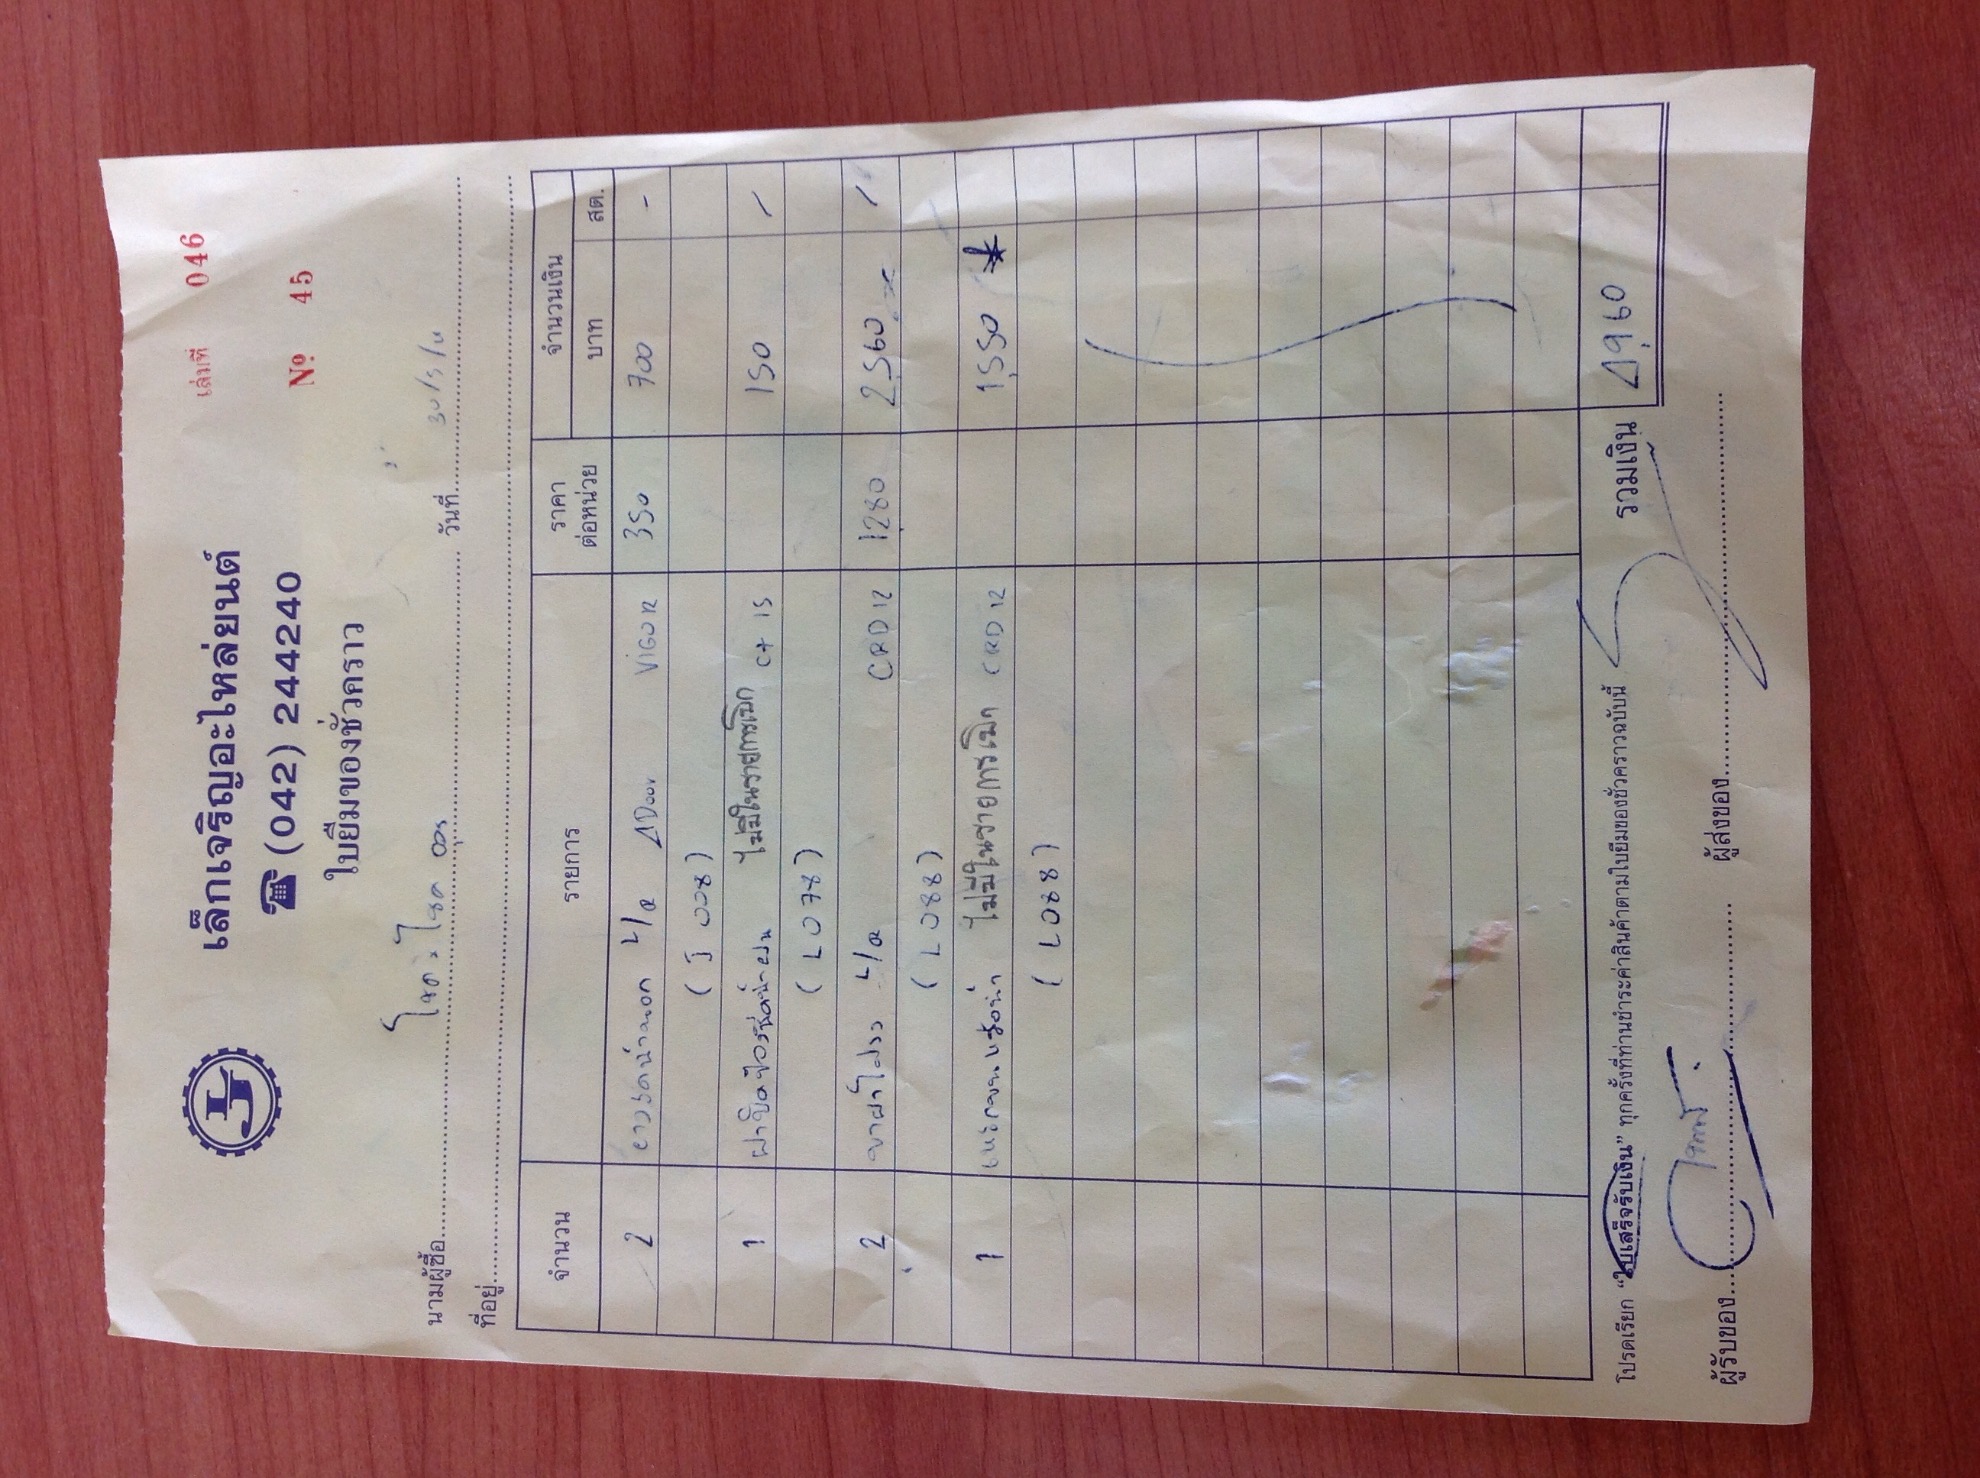 เล่มที่ 046
เล็กเจริญอะไหล่ยนต์
☎ (042) 244240
Nº 45
ใบยืมของชั่วคราว
นามผู้ซื้อ วันที่ 30/5/
ที่อยู่
จำนวน รายการ ราคาต่อหน่วย จำนวนเงิน
บาท สต.
2 L/R 4Door VIGO 12 350 700 -
( J 008 )
1 ไม่มีในรายการเบิก C+ 15 150 /
( L 078 )
2 L/R CRD 12 1,280 2,560 /
( L 088 )
1 ไม่มีในรายการเบิก CRD 12 1,550 *
( L 088 )
รวมเงิน 4,960
โปรดเรียก “ใบเสร็จรับเงิน” ทุกครั้งที่ท่านชำระค่าสินค้าตามใบยืมของชั่วคราวฉบับนี้
ผู้รับของ ผู้ส่งของ